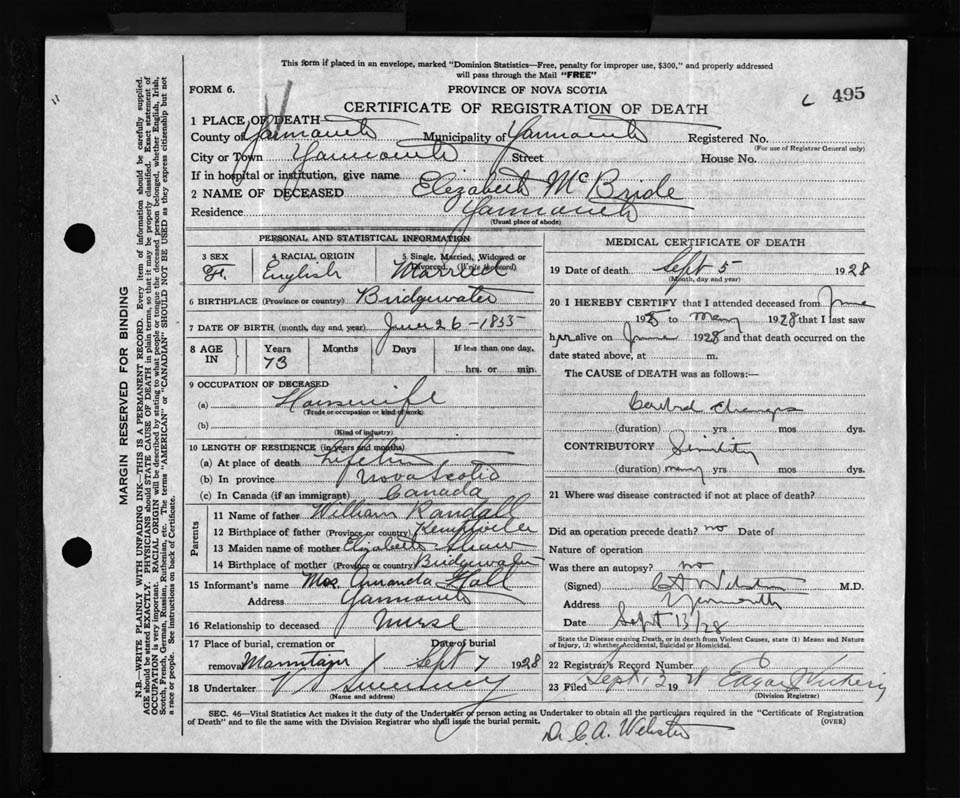 This form if placed in an envelope, marked "Dominion Statistics—Free, penalty for improper use, $300," and properly addressed
will pass through the Mail "FREE"
FORM 6.
PROVINCE OF NOVA SCOTIA
CERTIFICATE OF REGISTRATION OF DEATH
c 495
1 PLACE OF DEATH
County of Yarmouth Municipality of Yarmouth Registered No.
(For use of Registrar General only)
City or Town Yarmouth Street House No.
If in hospital or institution, give name
2 NAME OF DECEASED Elizabeth McBride
Residence Yarmouth
(Usual place of abode)
PERSONAL AND STATISTICAL INFORMATION
3 SEX 4 RACIAL ORIGIN 5 Single, Married, Widowed or Divorced. (Write the word)
F. English Married
6 BIRTHPLACE (Province or country) Bridgewater
7 DATE OF BIRTH (month, day and year) June 26 - 1855
8 AGE IN Years Months Days If less than one day,
73 hrs. or min.
9 OCCUPATION OF DECEASED
(a) Housewife
(Trade or occupation or kind of work)
(b)
(Kind of industry)
10 LENGTH OF RESIDENCE (in years and months)
(a) At place of death Lifetime
(b) In province Nova Scotia
(c) In Canada (if an immigrant) Canada
Parents
11 Name of father William Randall
12 Birthplace of father (Province or country)
13 Maiden name of mother Elizabeth Shaw
14 Birthplace of mother (Province or country) Bridgewater
15 Informant's name Mrs. Amanda Hall
Address Yarmouth
16 Relationship to deceased Nurse
17 Place of burial, cremation or removal Date of burial
Mountain Sept 7 1928
18 Undertaker V S Sweeney
(Name and address)
MEDICAL CERTIFICATE OF DEATH
19 Date of death Sept 5 1928
(Month, day and year)
20 I HEREBY CERTIFY that I attended deceased from June
1928 to 1928 that I last saw
her alive on 1928 and that death occurred on the
date stated above, at m.
The CAUSE of DEATH was as follows:—
Cerebral changes
(duration) yrs mos dys.
CONTRIBUTORY Senility
(duration) many yrs mos dys.
21 Where was disease contracted if not at place of death?
Did an operation precede death? no Date of
Nature of operation
Was there an autopsy? no
(Signed) C A Webster M.D.
Address Yarmouth
Date Sept 13/28
State the Disease causing Death, or in death from Violent Causes, state (1) Means and Nature
of Injury, (2) whether Accidental, Suicidal or Homicidal.
22 Registrar's Record Number
23 Filed Sept. 13 1928 Edgar
(Division Registrar)
SEC. 46—Vital Statistics Act makes it the duty of the Undertaker or person acting as Undertaker to obtain all the particulars required in the "Certificate of Registration
of Death" and to file the same with the Division Registrar who shall issue the burial permit.
(OVER)
Dr C. A. Webster
MARGIN RESERVED FOR BINDING
N.B.—WRITE PLAINLY WITH UNFADING INK—THIS IS A PERMANENT RECORD. Every item of information should be carefully supplied.
AGE should be stated EXACTLY. PHYSICIANS should STATE CAUSE OF DEATH in plain terms, so that it may be properly classified. Exact statement of
OCCUPATION is very important. RACIAL ORIGIN will be described by stating to what people or tongue the deceased person belonged, whether English, Irish,
Scotch, French, German, Russian, Ruthenian, etc. The terms "AMERICAN" or "CANADIAN" SHOULD NOT BE USED as they express citizenship but not
a race or people. See instructions on back of Certificate.